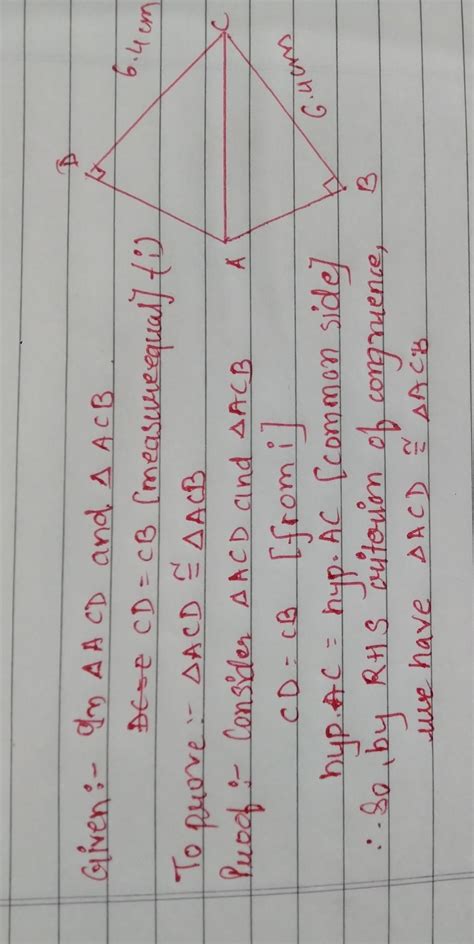 Given:- In ΔACD and ΔACB
CD = CB [measure equal] -(i)
To prove:- ΔACD ≅ ΔACB
Proof:- Consider ΔACD and ΔACB
CD = CB [from i]
hyp. AC = hyp. AC [common side]
∴ So, by RHS criterion of congruence,
we have ΔACD ≅ ΔACB
D
6.4cm
C
A
6.4cm
B